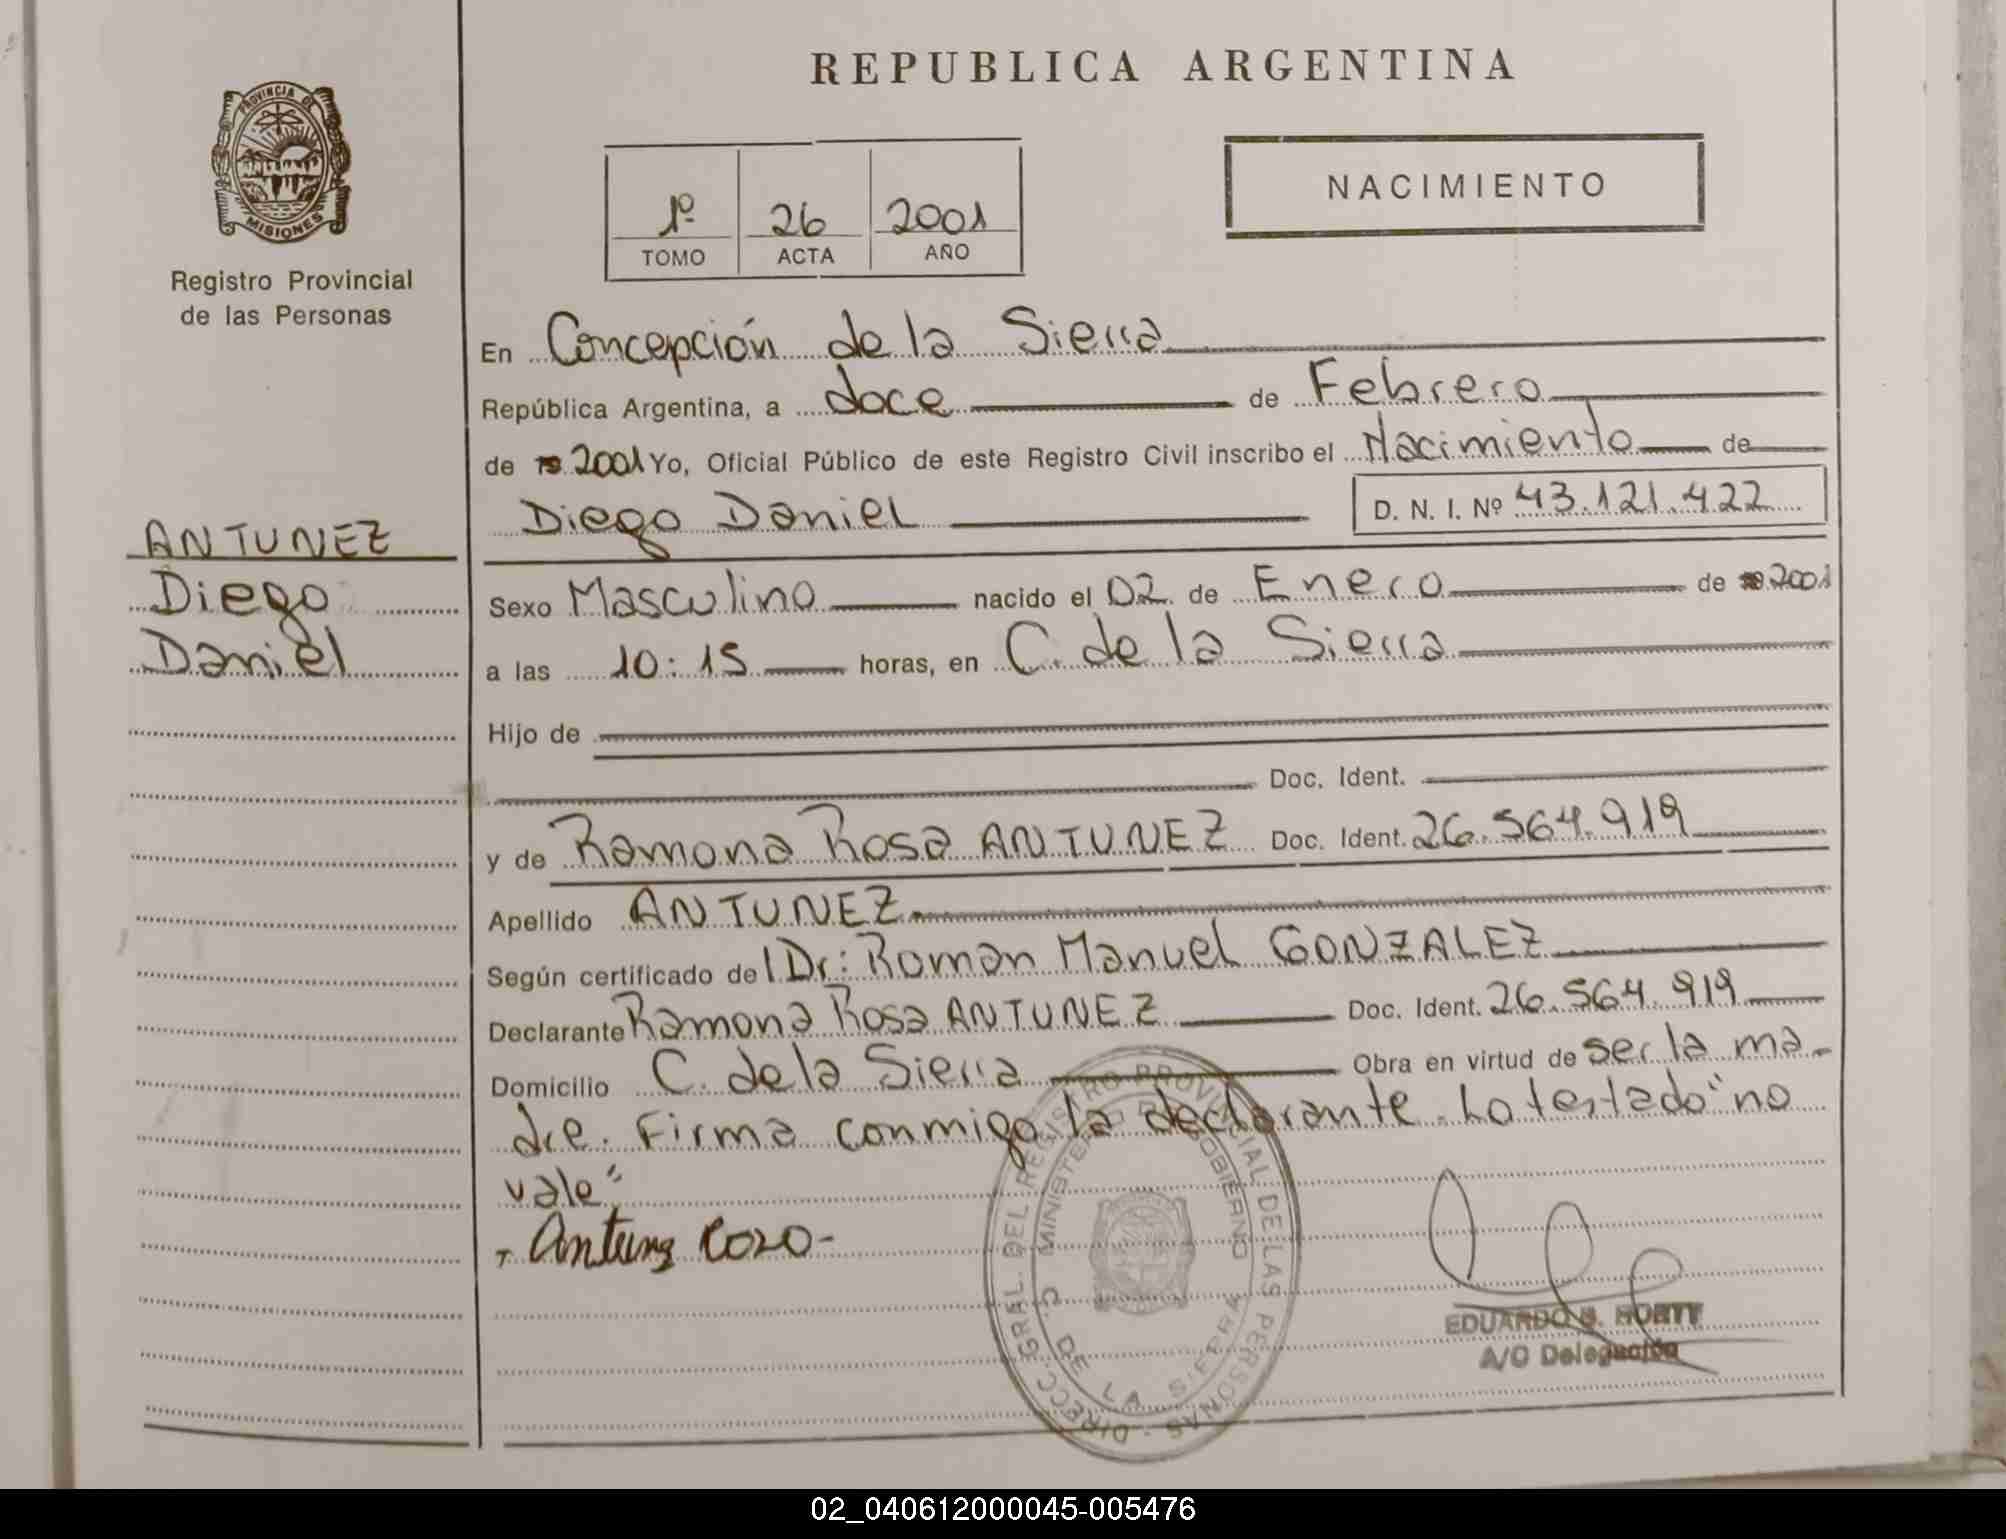 REPUBLICA ARGENTINA
PROVINCIA DE
MISIONES
Registro Provincial
de las Personas
1º 26 2001
TOMO ACTA AÑO
NACIMIENTO
En Concepción de la Sierra
República Argentina, a doce de Febrero
de 19 2001 Yo, Oficial Público de este Registro Civil inscribo el Nacimiento de
Diego Daniel D. N. I. Nº 43.121.422
ANTUNEZ
Diego
Daniel
Sexo Masculino nacido el 02 de Enero de 2001
a las 10:15 horas, en C. de la Sierra
Hijo de
Doc. Ident.
y de Ramona Rosa ANTUNEZ Doc. Ident. 26.564.919
Apellido ANTUNEZ
Según certificado del Dr: Roman Manuel GONZALEZ
Declarante Ramona Rosa ANTUNEZ Doc. Ident. 26.564.919
Domicilio C. de la Sierra Obra en virtud de ser la ma-
dre. Firma conmigo la declarante. Lo testado "no
vale"
DIRECC. GRAL. DEL REGISTRO PROVINCIAL DE LAS PERSONAS
MINISTERIO DE GOBIERNO
C. DE LA SIERRA
EDUARDO
A/C Delegación
02_040612000045-005476